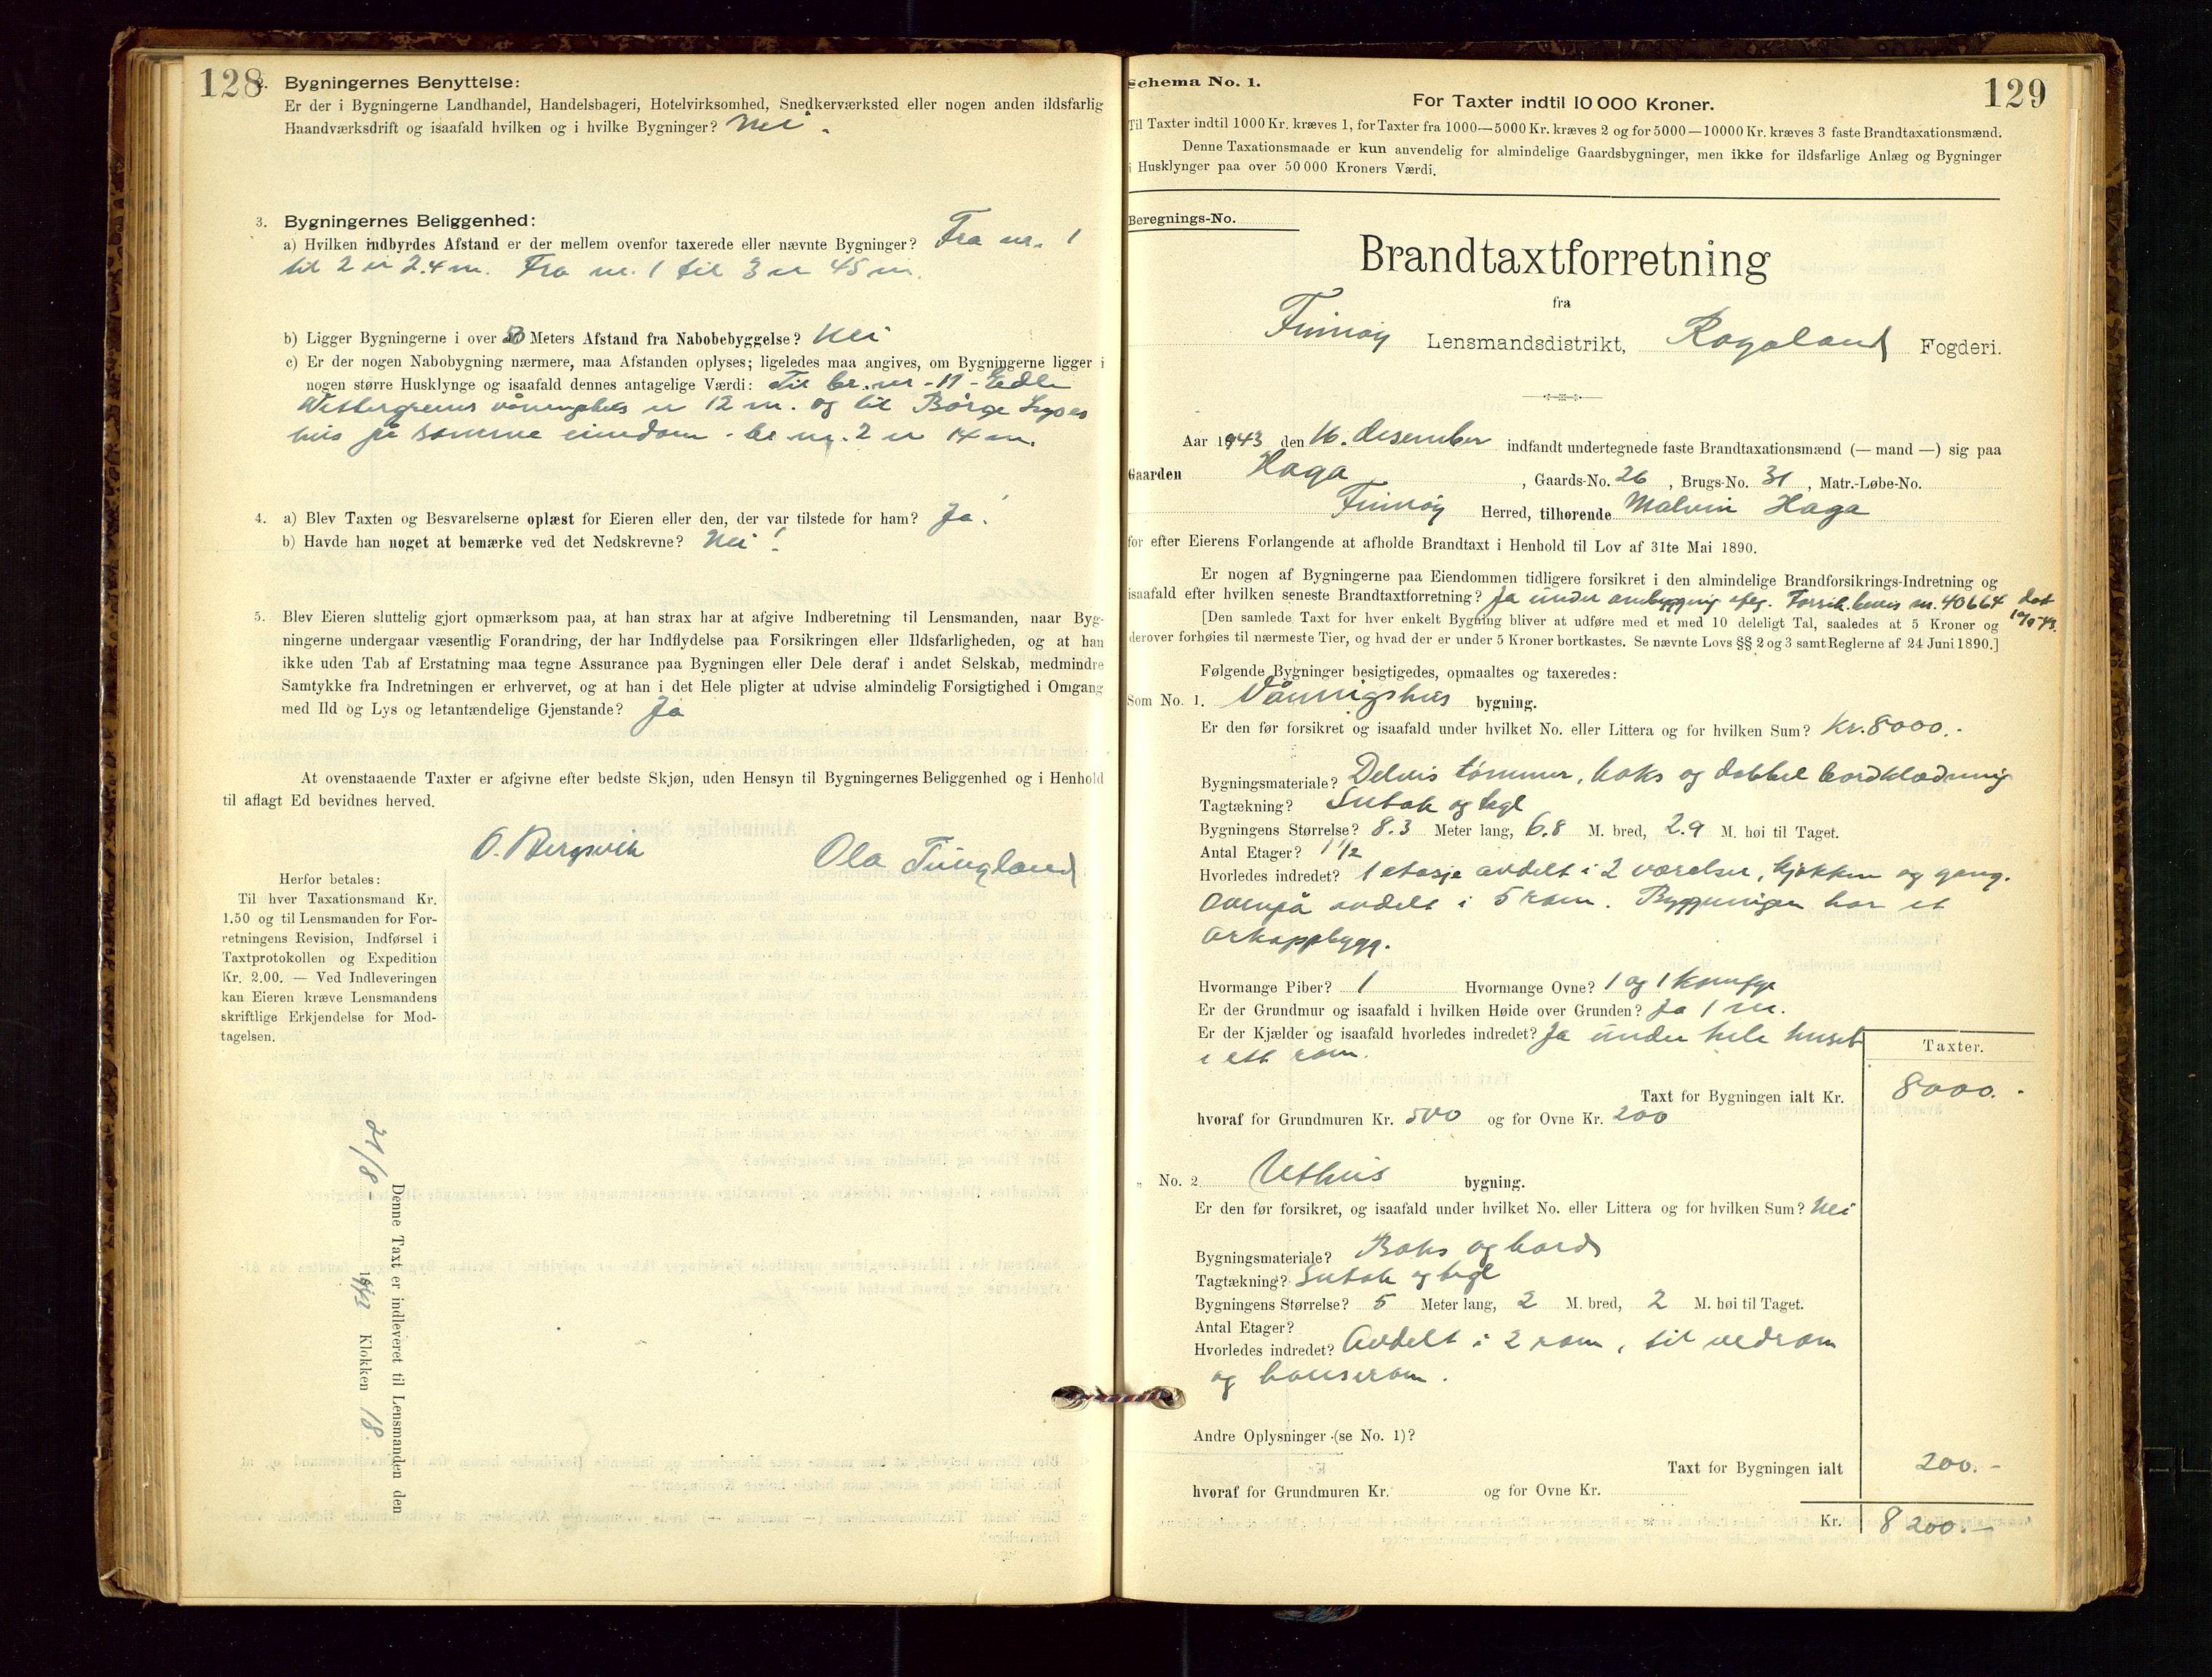 128
2. Bygningernes Benyttelse:
Er der i Bygningerne Landhandel, Handelsbageri, Hotelvirksomhed, Snedkerværksted eller nogen anden ildsfarlig
Haandværksdrift og isaafald hvilken og i hvilke Bygninger? Nei.
3. Bygningernes Beliggenhed:
a) Hvilken indbyrdes Afstand er der mellem ovenfor taxerede eller nævnte Bygninger? Fra nr. 1
til 2 er 2.4 m. Fra nr. 1 til 3 er 45 m.
b) Ligger Bygningerne i over Meters Afstand fra Nabobebyggelse? Nei
c) Er der nogen Nabobygning nærmere, maa Afstanden oplyses; ligeledes maa angives, om Bygningerne ligger i
nogen større Husklynge og isaafald dennes antagelige Værdi: Til br. nr - 11 -
våningshus er 12 m. og til Børge
hus på samme eiendom - br nr. 2 er 14 m.
4. a) Blev Taxten og Besvarelserne oplæst for Eieren eller den, der var tilstede for ham? Ja.
b) Havde han noget at bemærke ved det Nedskrevne? Nei!
5. Blev Eieren sluttelig gjort opmærksom paa, at han strax har at afgive Indberetning til Lensmanden, naar Byg-
ningerne undergaar væsentlig Forandring, der har Indflydelse paa Forsikringen eller Ildsfarligheden, og at han
ikke uden Tab af Erstatning maa tegne Assurance paa Bygningen eller Dele deraf i andet Selskab, medmindre
Samtykke fra Indretningen er erhvervet, og at han i det Hele pligter at udvise almindelig Forsigtighed i Omgang
med Ild og Lys og letantændelige Gjenstande? Ja
At ovenstaaende Taxter er afgivne efter bedste Skjøn, uden Hensyn til Bygningernes Beliggenhed og i Henhold
til aflagt Ed bevidnes herved.
O. Bergsvik Ola Tungland
Herfor betales:
Til hver Taxationsmand Kr.
1.50 og til Lensmanden for For-
retningens Revision, Indførsel i
Taxtprotokollen og Expedition
Kr. 2.00. — Ved Indleveringen
kan Eieren kræve Lensmandens
skriftlige Erkjendelse for Mod-
tagelsen.
Denne Taxt er indleveret til Lensmanden den
21/8 - Klokken 18.
129
Schema No. 1.
For Taxter indtil 10 000 Kroner.
Til Taxter indtil 1000 Kr. kræves 1, for Taxter fra 1000—5000 Kr. kræves 2 og for 5000—10000 Kr. kræves 3 faste Brandtaxationsmænd.
Denne Taxationsmaade er kun anvendelig for almindelige Gaardsbygninger, men ikke for ildsfarlige Anlæg og Bygninger
i Husklynger paa over 50 000 Kroners Værdi.
Beregnings-No.
Brandtaxtforretning
fra
Finnøy Lensmandsdistrikt, Rogaland Fogderi.
Aar 1943 den 16. desember indfandt undertegnede faste Brandtaxationsmænd (— mand —) sig paa
Gaarden Haga, Gaards-No. 26, Brugs-No. 31, Matr.-Løbe-No.
Finnøy Herred, tilhørende Malvin Haga
for efter Eierens Forlangende at afholde Brandtaxt i Henhold til Lov af 31te Mai 1890.
Er nogen af Bygningerne paa Eiendommen tidligere forsikret i den almindelige Brandforsikrings-Indretning og
isaafald efter hvilken seneste Brandtaxtforretning? Ja under ombygging Forsik. bevis nr. 40664 dat
[Den samlede Taxt for hver enkelt Bygning bliver at udføre med et med 10 deleligt Tal, saaledes at 5 Kroner og
derover forhøies til nærmeste Tier, og hvad der er under 5 Kroner bortkastes. Se nævnte Lovs §§ 2 og 3 samt Reglerne af 24 Juni 1890.]
Følgende Bygninger besigtigedes, opmaaltes og taxeredes:
Som No. 1. Våningshus bygning.
Er den før forsikret og isaafald under hvilket No. eller Littera og for hvilken Sum? Kr. 8000.-
Bygningsmateriale? Delvis tømmer, boks og dobbel bordklædning
Tagtækning? Sutak og tegl
Bygningens Størrelse? 8.3 Meter lang, 6.8 M. bred, 2.9 M. høi til Taget.
Antal Etager? 1 1/2
Hvorledes indredet? 1 etasje avdelt i 2 værelser, kjøkken og gang.
Ovenpå avdelt i 5 rom. Bygningen har et
arkoppbygg.
Hvormange Piber? 1 Hvormange Ovne? 1 og 1 komfyr
Er der Grundmur og isaafald i hvilken Høide over Grunden? Ja 1 m.
Er der Kjælder og isaafald hvorledes indredet? Ja under hele huset
i ett rom.
Taxter.
Taxt for Bygningen ialt Kr. 8000.-
hvoraf for Grundmuren Kr. 500 og for Ovne Kr. 200
„ No. 2 Uthus bygning.
Er den før forsikret, og isaafald under hvilket No. eller Littera og for hvilken Sum? Nei
Bygningsmateriale? Boks og bord
Tagtækning? Sutak og tegl
Bygningens Størrelse? 5 Meter lang, 2 M. bred, 2 M. høi til Taget.
Antal Etager?
Hvorledes indredet? Avdelt i 2 rom, til vedrom
og honserom.
Andre Oplysninger (se No. 1)?
Taxt for Bygningen ialt 200.-
hvoraf for Grundmuren Kr. og for Ovne Kr.
Kr. 8200.-